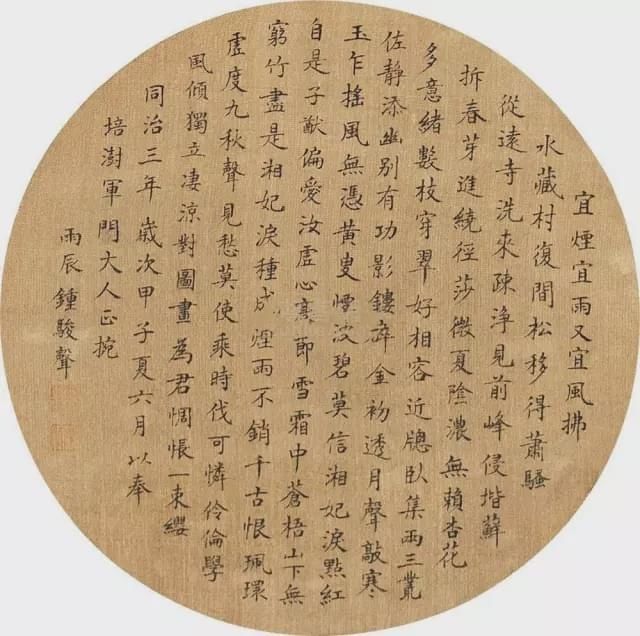 宜煙宜雨又宜風拂
水藏村復間松移得蕭騷
從遠寺洗來疎淨見前峰侵堦蘚
拆春芽迸繞徑莎微夏陰濃無賴杏花
多意緒數枝穿翠好相容近牕臥集兩三叢
佐靜添幽別有功影鏤碎金初透月聲敲寒
玉乍搖風無憑黃叟煙波碧莫信湘妃淚點紅
自是子猷偏愛汝虛心高節雪霜中蒼梧山下無
窮竹盡是湘妃淚種成煙雨不銷千古恨珮環
虛度九秋聲見愁莫使乘時伐可憐伶倫學
風傾獨立凄涼對圖畫為君惆悵一束纓
同治三年歲次甲子夏六月以奉
培澍軍門大人正捥
雨辰鍾駿聲